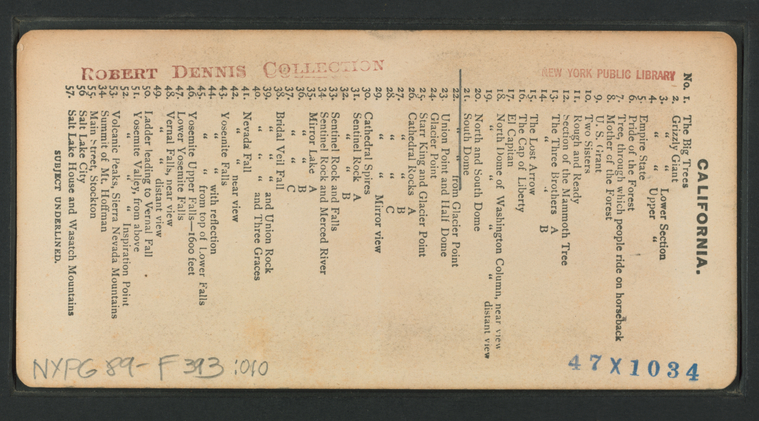 CALIFORNIA.
No. 1. The Big Trees
2. Grizzly Giant
3. " " Lower Section
4. " " Upper "
5. Empire State
6. Pride of the Forest
7. Tree, through which people ride on horseback
8. Mother of the Forest
9. U. S. Grant
10. Two Sisters
11. Rough and Ready
12. Section of the Mammoth Tree
13. The Three Brothers A
14. " " " B
15. The Lost Arrow
16. The Cap of Liberty
17. El Capitan
18. North Dome of Washington Column, near view
19. " " " " distant view
20. North and South Dome
21. South Dome
22. " " from Glacier Point
23. Union Point and Half Dome
24. Glacier Point
25. Starr King and Glacier Point
26. Cathedral Rocks A
27. " " B
28. " " C
29. " " Mirror view
30. Cathedral Spires
31. Sentinel Rock A
32. " " B
33. Sentinel Rock and Falls
34. Sentinel Rock and Merced River
35. Mirror Lake A
36. " " B
37. " " C
38. Bridal Veil Fall
39. " " " and Union Rock
40. " " " and Three Graces
41. Nevada Fall
42. " " near view
43. Yosemite Falls
44. " " with reflection
45. " " from top of Lower Falls
46. Yosemite Upper Falls—1600 feet
47. Lower Yosemite Falls
48. Vernal Falls, near view
49. " " distant view
50. Ladder leading to Vernal Fall
51. Yosemite Valley, from above
52. " " " Inspiration Point
53. Volcanic Peaks, Sierra Nevada Mountains
54. Summit of Mt. Hoffman
55. Main Street, Stockton
56. Salt Lake City
57. Salt Lake House and Wasatch Mountains
SUBJECT UNDERLINED.
ROBERT DENNIS COLLECTION
NEW YORK PUBLIC LIBRARY
NYPG 89-F393:010
47X1034